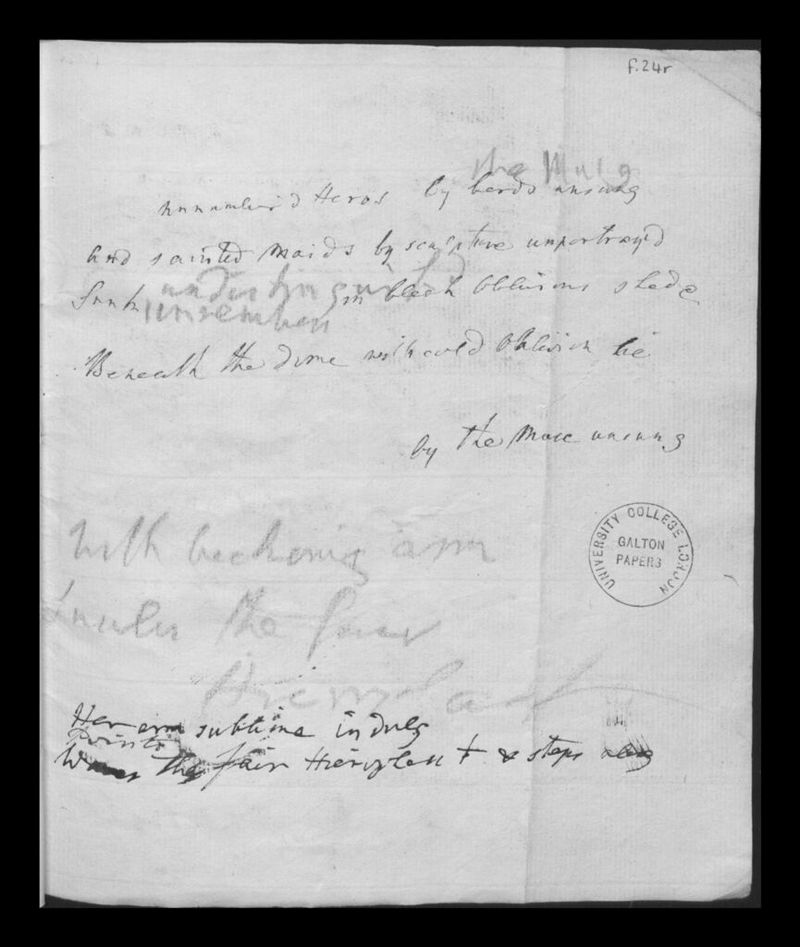 f.24r
the Muse
unnumber'd Heros by bards unsung
and sainted Maids by sculpture unportray'd
Sunk in bleak Oblivions shade
undistinguish'd
unremember
Beneath the dome with cold Oblivion lie
by the Muse unsung
With beckoning arm
the fair
Hierophant
Her arm sublime indulg
Points
Waves the fair Hierophant & steps along
UNIVERSITY COLLEGE LONDON
GALTON
PAPERS